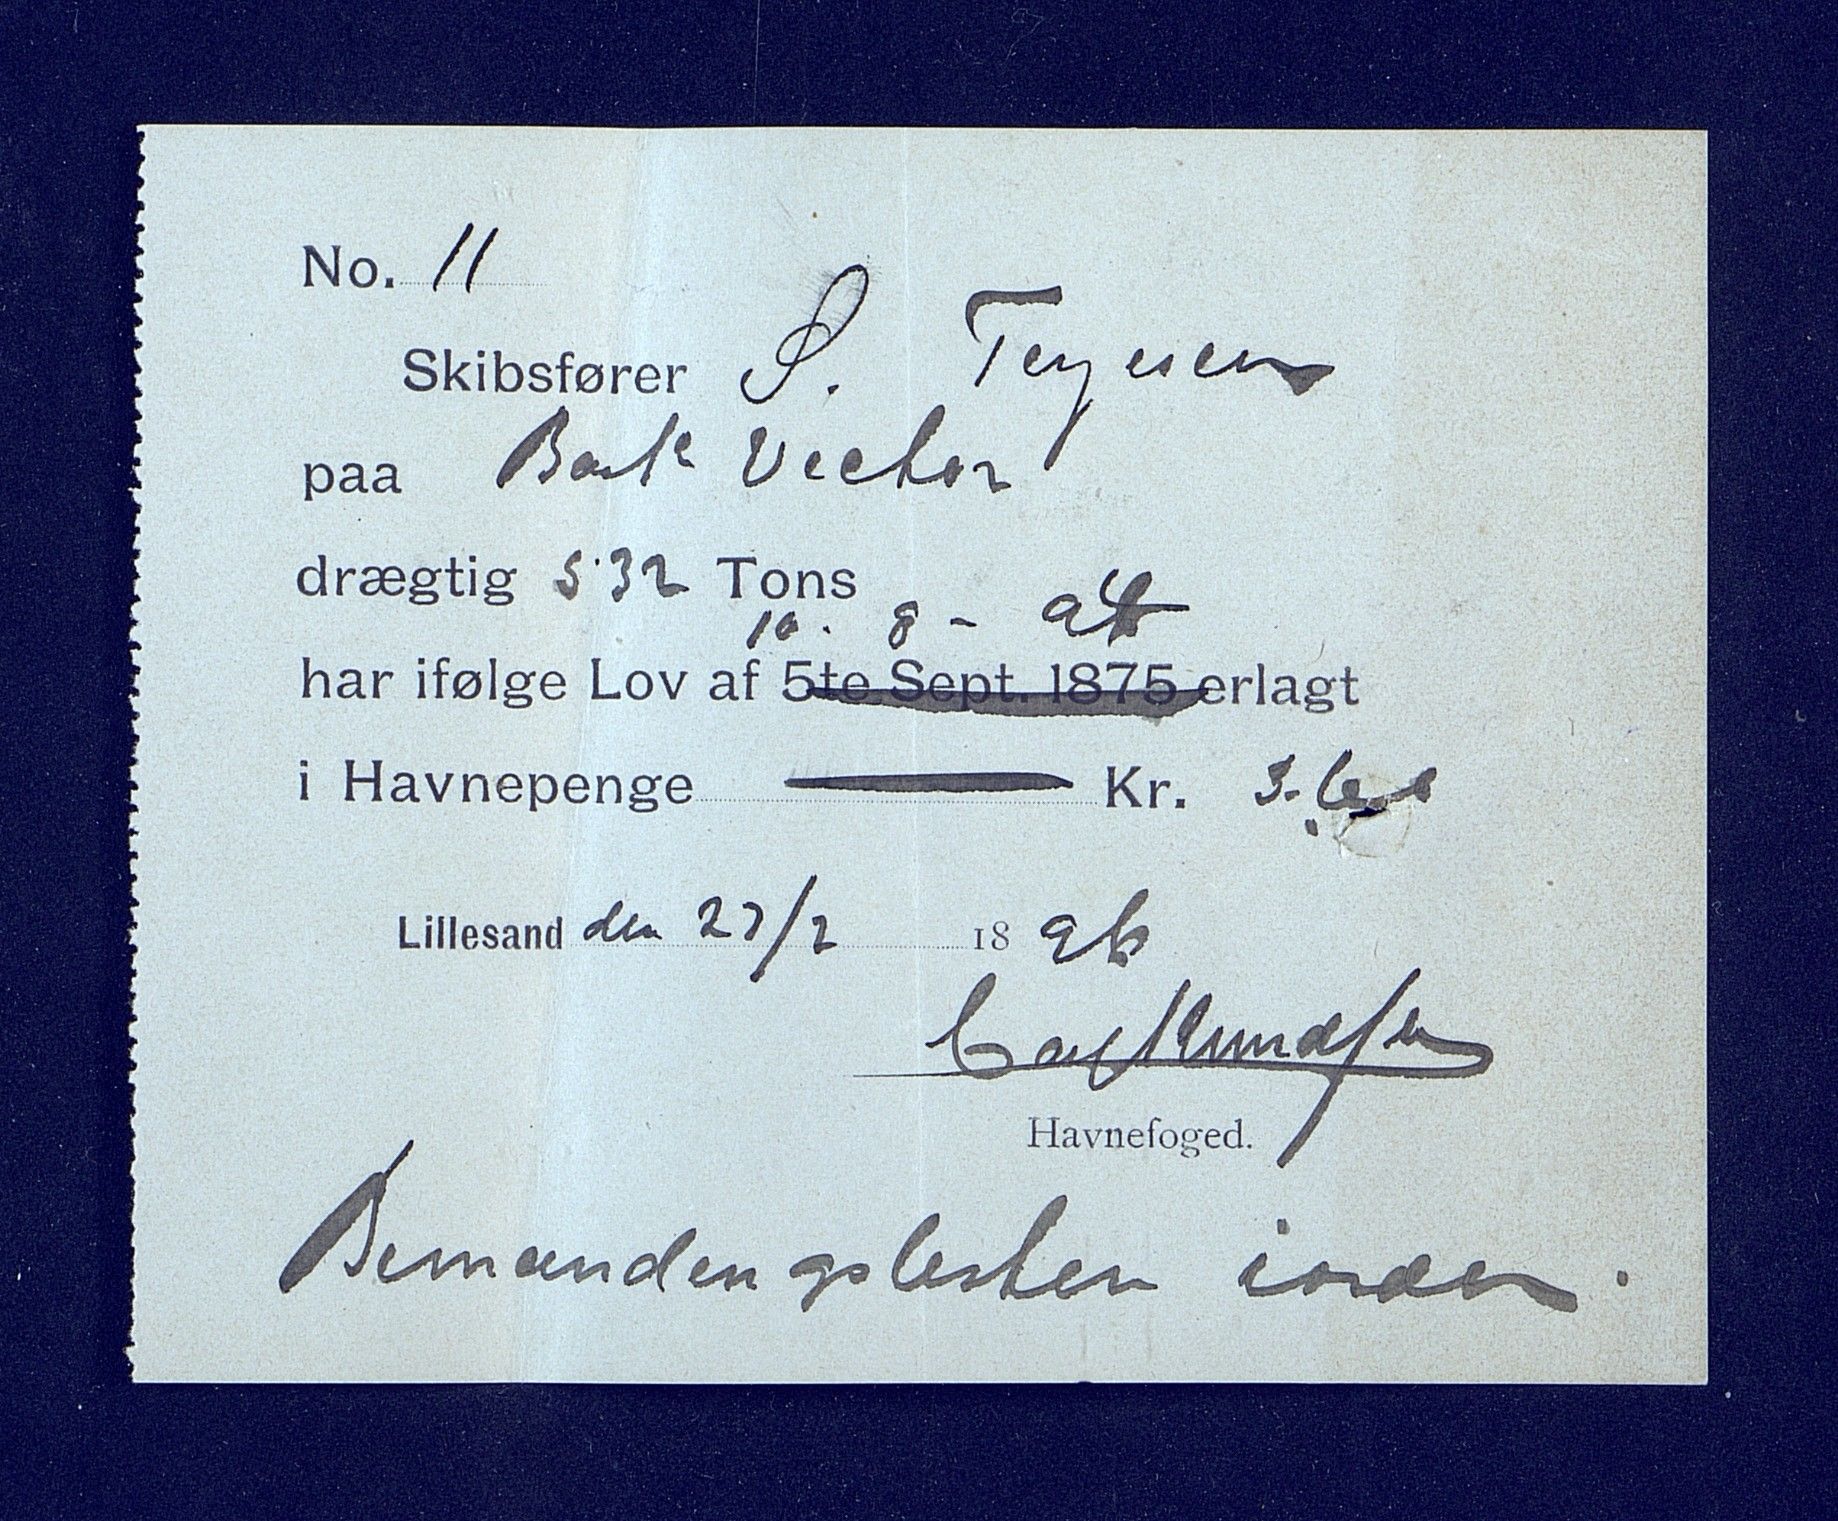 No. 11
Skibsfører S. Terjesen
paa Bark Vector
drægtig 532 Tons
10. 8 -
har ifølge Lov af 5te Sept. 1875 erlagt
i Havnepenge Kr. 3.
Lillesand den 27/2 1896
Carl Knudsen
Havnefoged.
Bemandingslisten iorden.